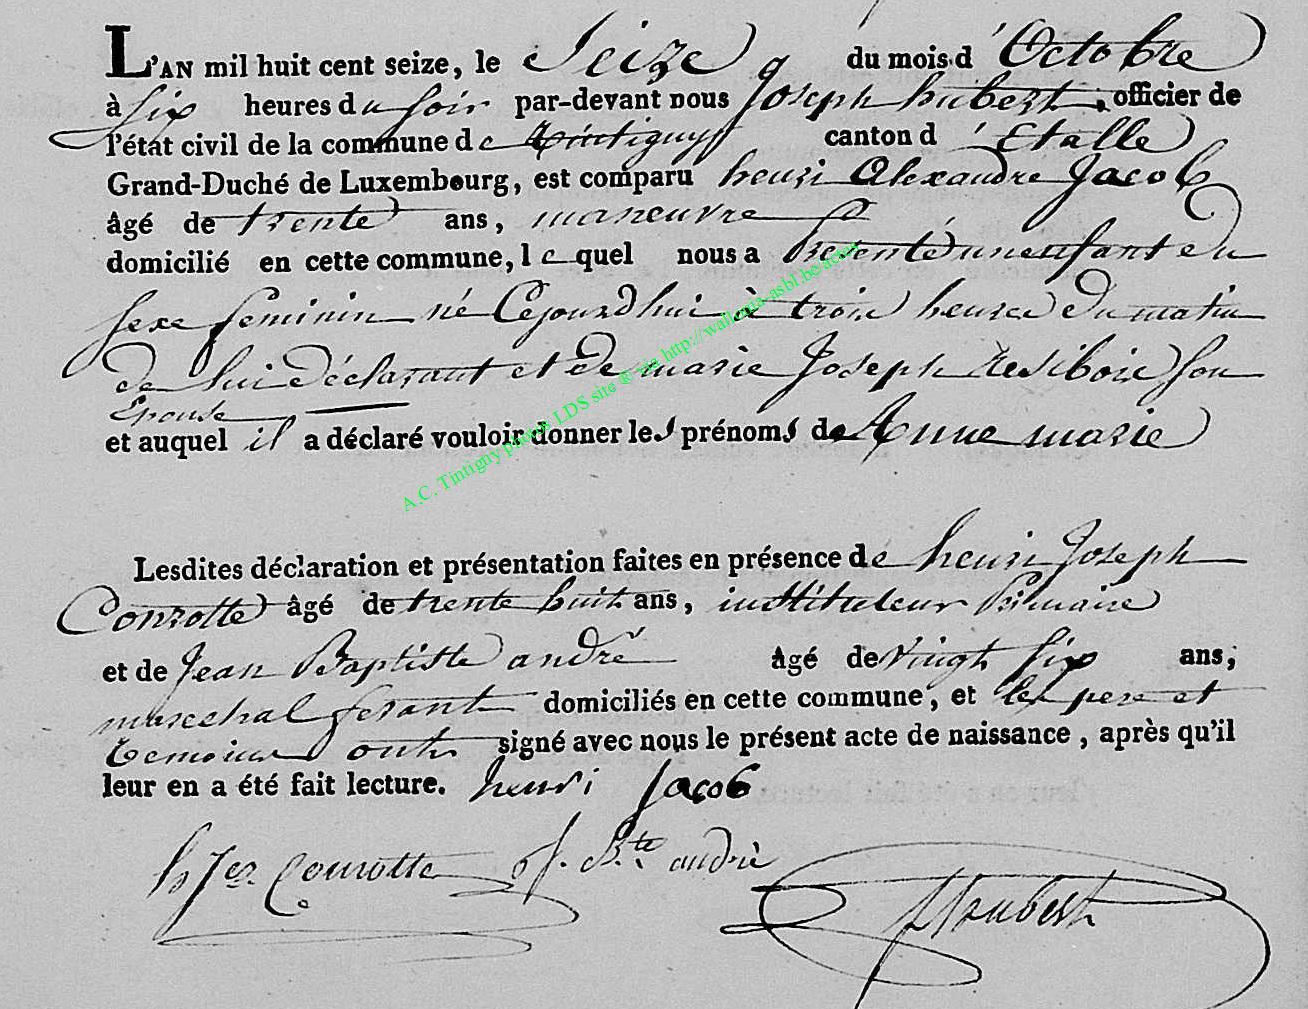 L'AN mil huit cent seize, le Seize du mois d'Octobre
à six heures du soir par-devant nous Joseph hubert, officier de
l'état civil de la commune de tintigny canton d'Etalle
Grand-Duché de Luxembourg, est comparu henri Alexandre Jacob
âgé de trente ans, maneuvre
domicilié en cette commune, lequel nous a presenté un enfant du
sexe feminin né Cejourdhui à trois heures du matin
de lui déclarant et de marie Joseph son
Epouse
et auquel il a déclaré vouloir donner les prénoms de Anne marie
Lesdites déclaration et présentation faites en présence de henri Joseph
Conrotte âgé de trente huit ans, instituteur Primaire
et de Jean Baptiste andré âgé de vingt six ans,
marechal ferant domiciliés en cette commune, et les pere et
temoins ont signé avec nous le présent acte de naissance, après qu'il
leur en a été fait lecture. henri Jacob
h Jh Conrotte J. Bte andré
Hubert
A.C. Tintigny photos LDS site @ via http://wallonia-asbl.be/actes